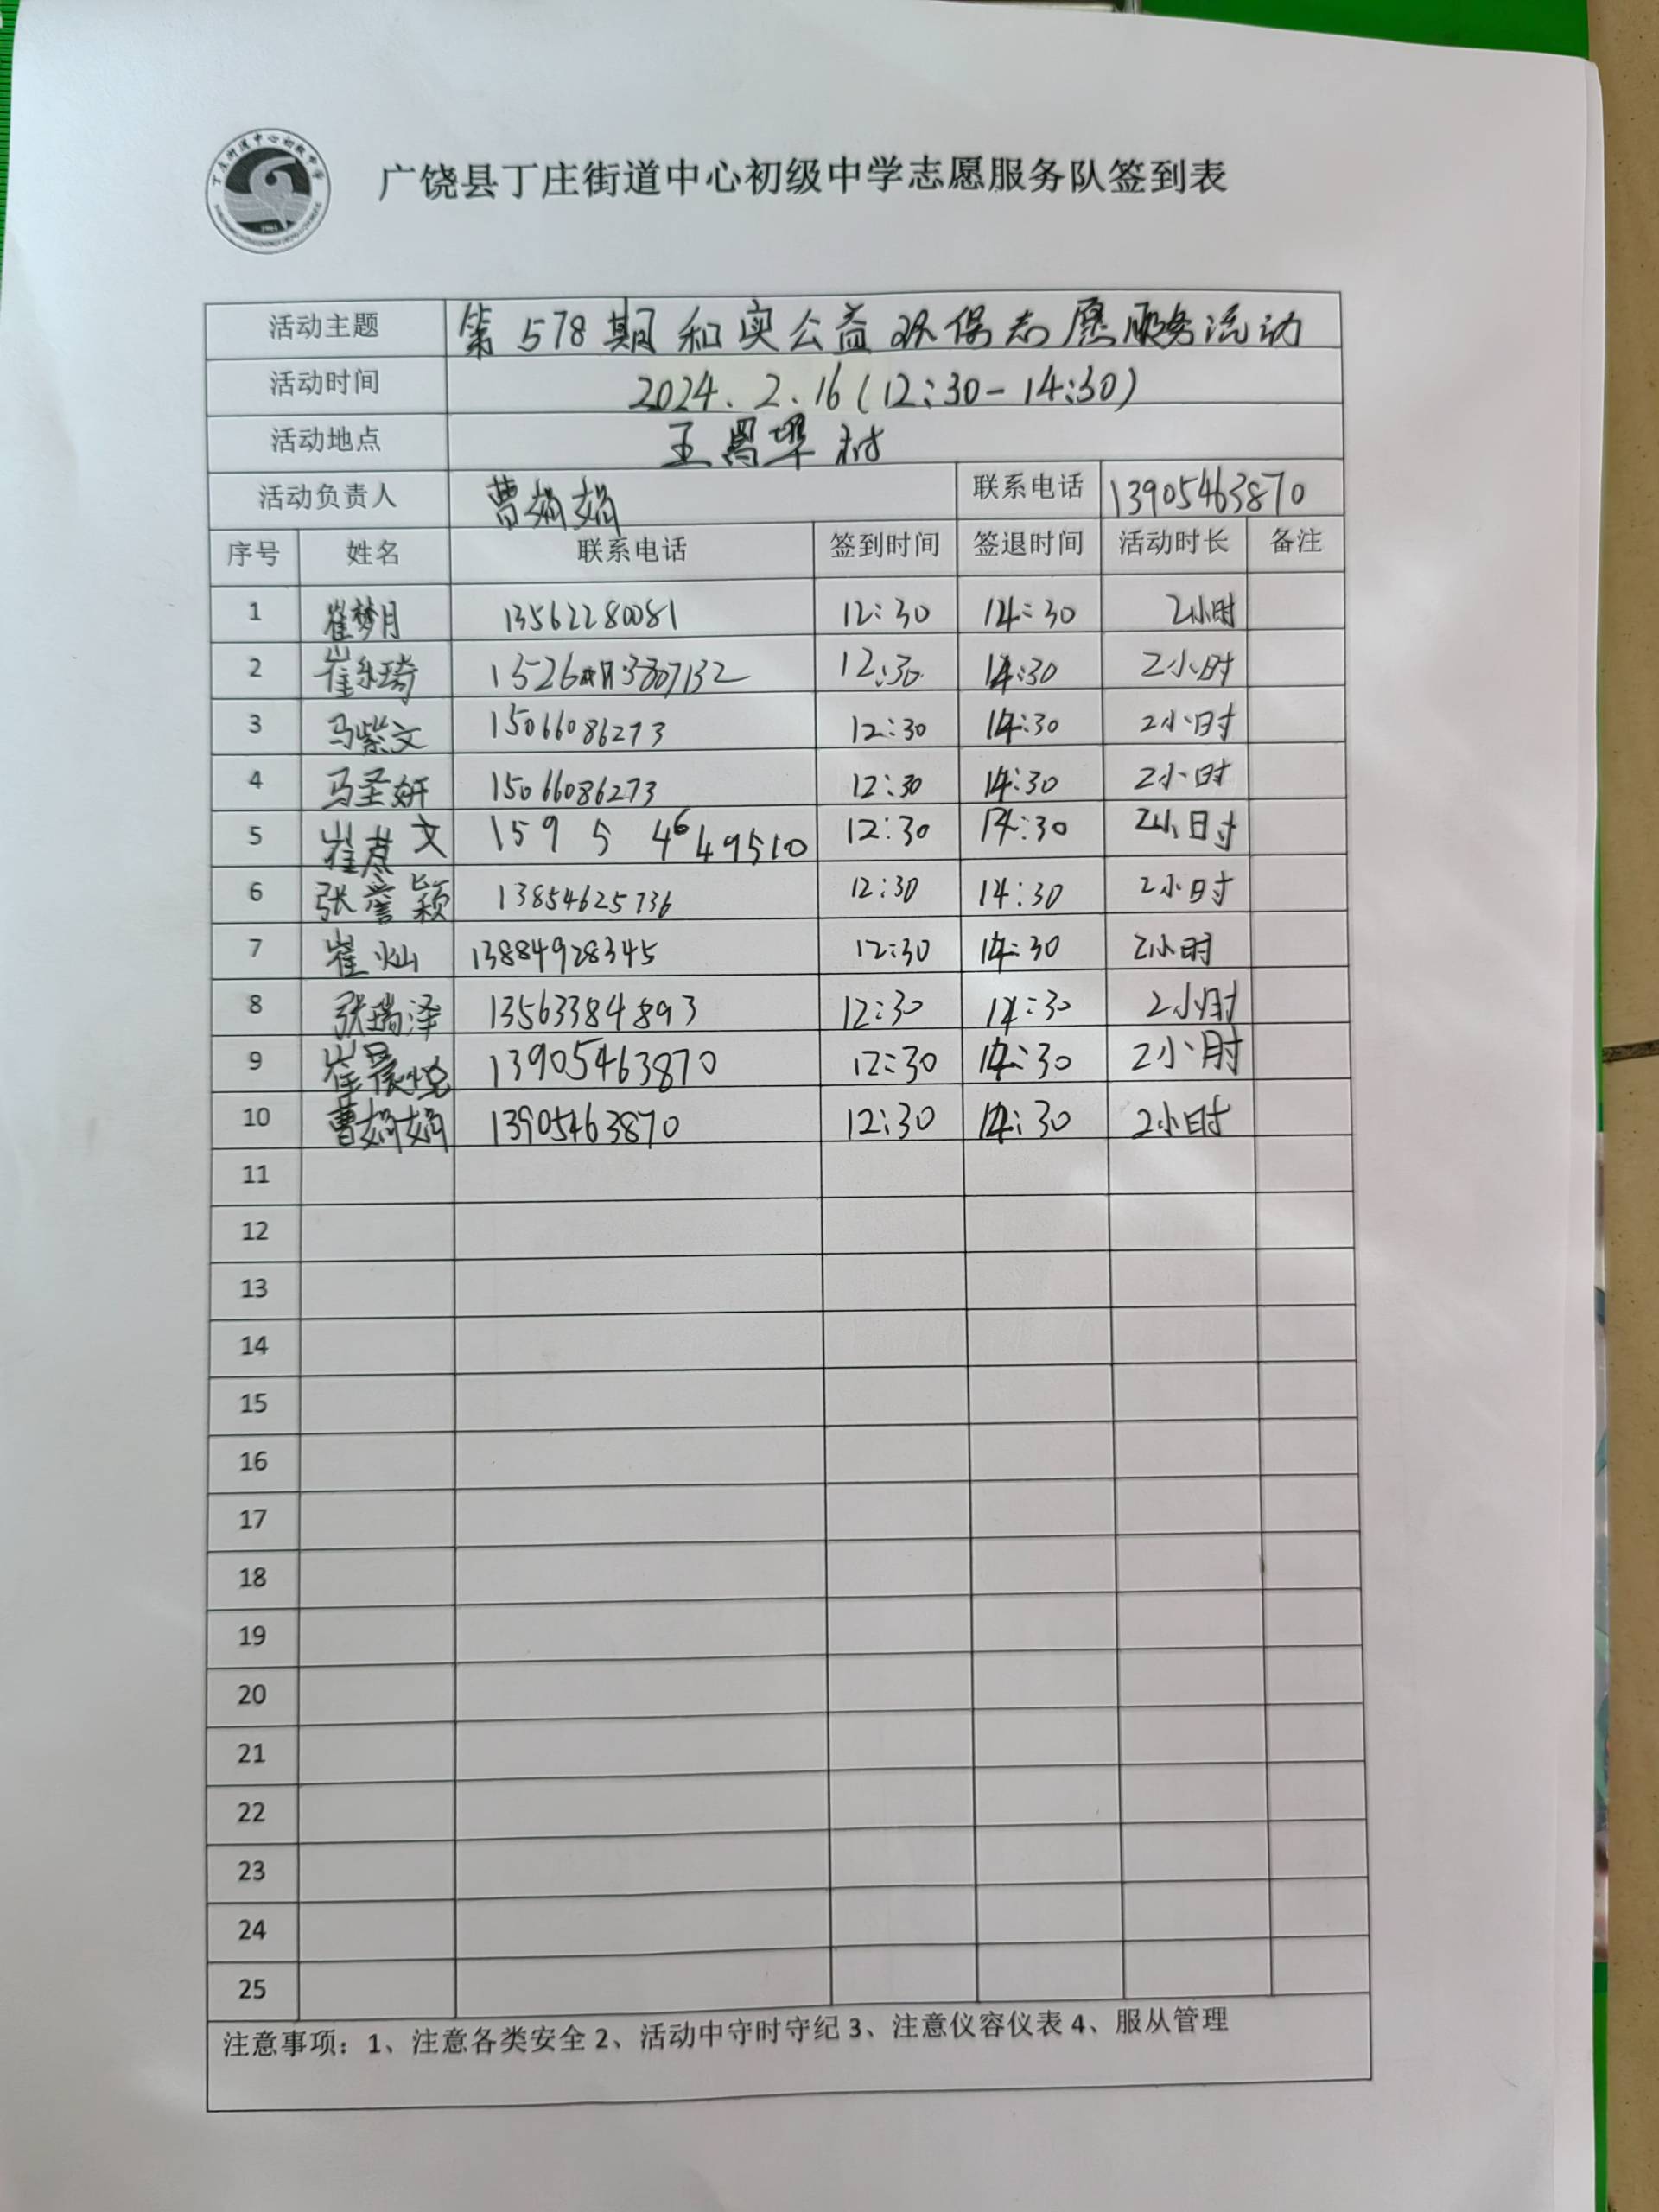 广饶县丁庄街道中心初级中学志愿服务队签到表
活动主题 第578期和实公益环保志愿服务活动
活动时间 2024.2.16(12:30-14:30)
活动地点 王 村
活动负责人 曹娟娟 联系电话 13905463870
序号 姓名 联系电话 签到时间 签退时间 活动时长 备注
1 崔梦月 13562280081 12:30 14:30 2小时
2 崔乐琦 12:30 14:30 2小时
3 马紫文 15066086273 12:30 14:30 2小时
4 马圣妍 15066086273 12:30 14:30 2小时
5 崔 文 15954649510 12:30 14:30 2小时
6 张誉颖 13854625736 12:30 14:30 2小时
7 崔灿 13884928345 12:30 14:30 2小时
8 张瑞泽 13563384893 12:30 14:30 2小时
9 崔晨悦 13905463870 12:30 14:30 2小时
10 曹娟娟 13905463870 12:30 14:30 2小时
11
12
13
14
15
16
17
18
19
20
21
22
23
24
25
注意事项：1、注意各类安全 2、活动中守时守纪 3、注意仪容仪表 4、服从管理